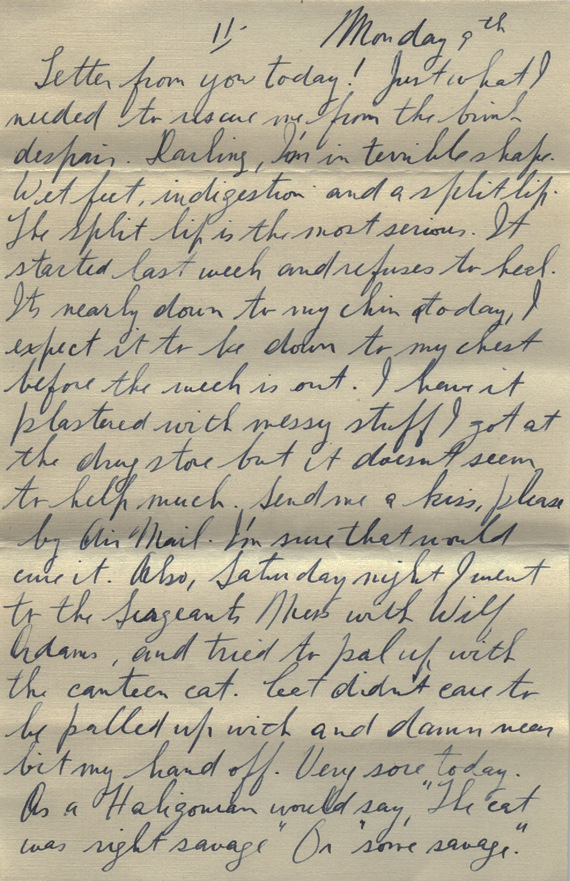 11/ Monday 9th
Letter from you today! Just what I
needed to rescue me from the brink
despair. Darling, I'm in terrible shape.
Wet feet, indigestion and a split lip.
The split lip is the most serious. It
started last week and refuses to heal.
It's nearly down to my chin today, I
expect it to be down to my chest
before the week is out. I have it
plastered with messy stuff I got at
the drug store but it doesn't seem
to help much. Send me a kiss, please
by Air Mail. I'm sure that would
cure it. Also, Saturday night I went
to the Sergeants Mess with Wilf
Adams, and tried to pal up with
the canteen cat. Cat didn't care to
be palled up with and damn near
bit my hand off. Very sore today.
As a Haligonian would say, "The cat
was right savage" Or "some savage."